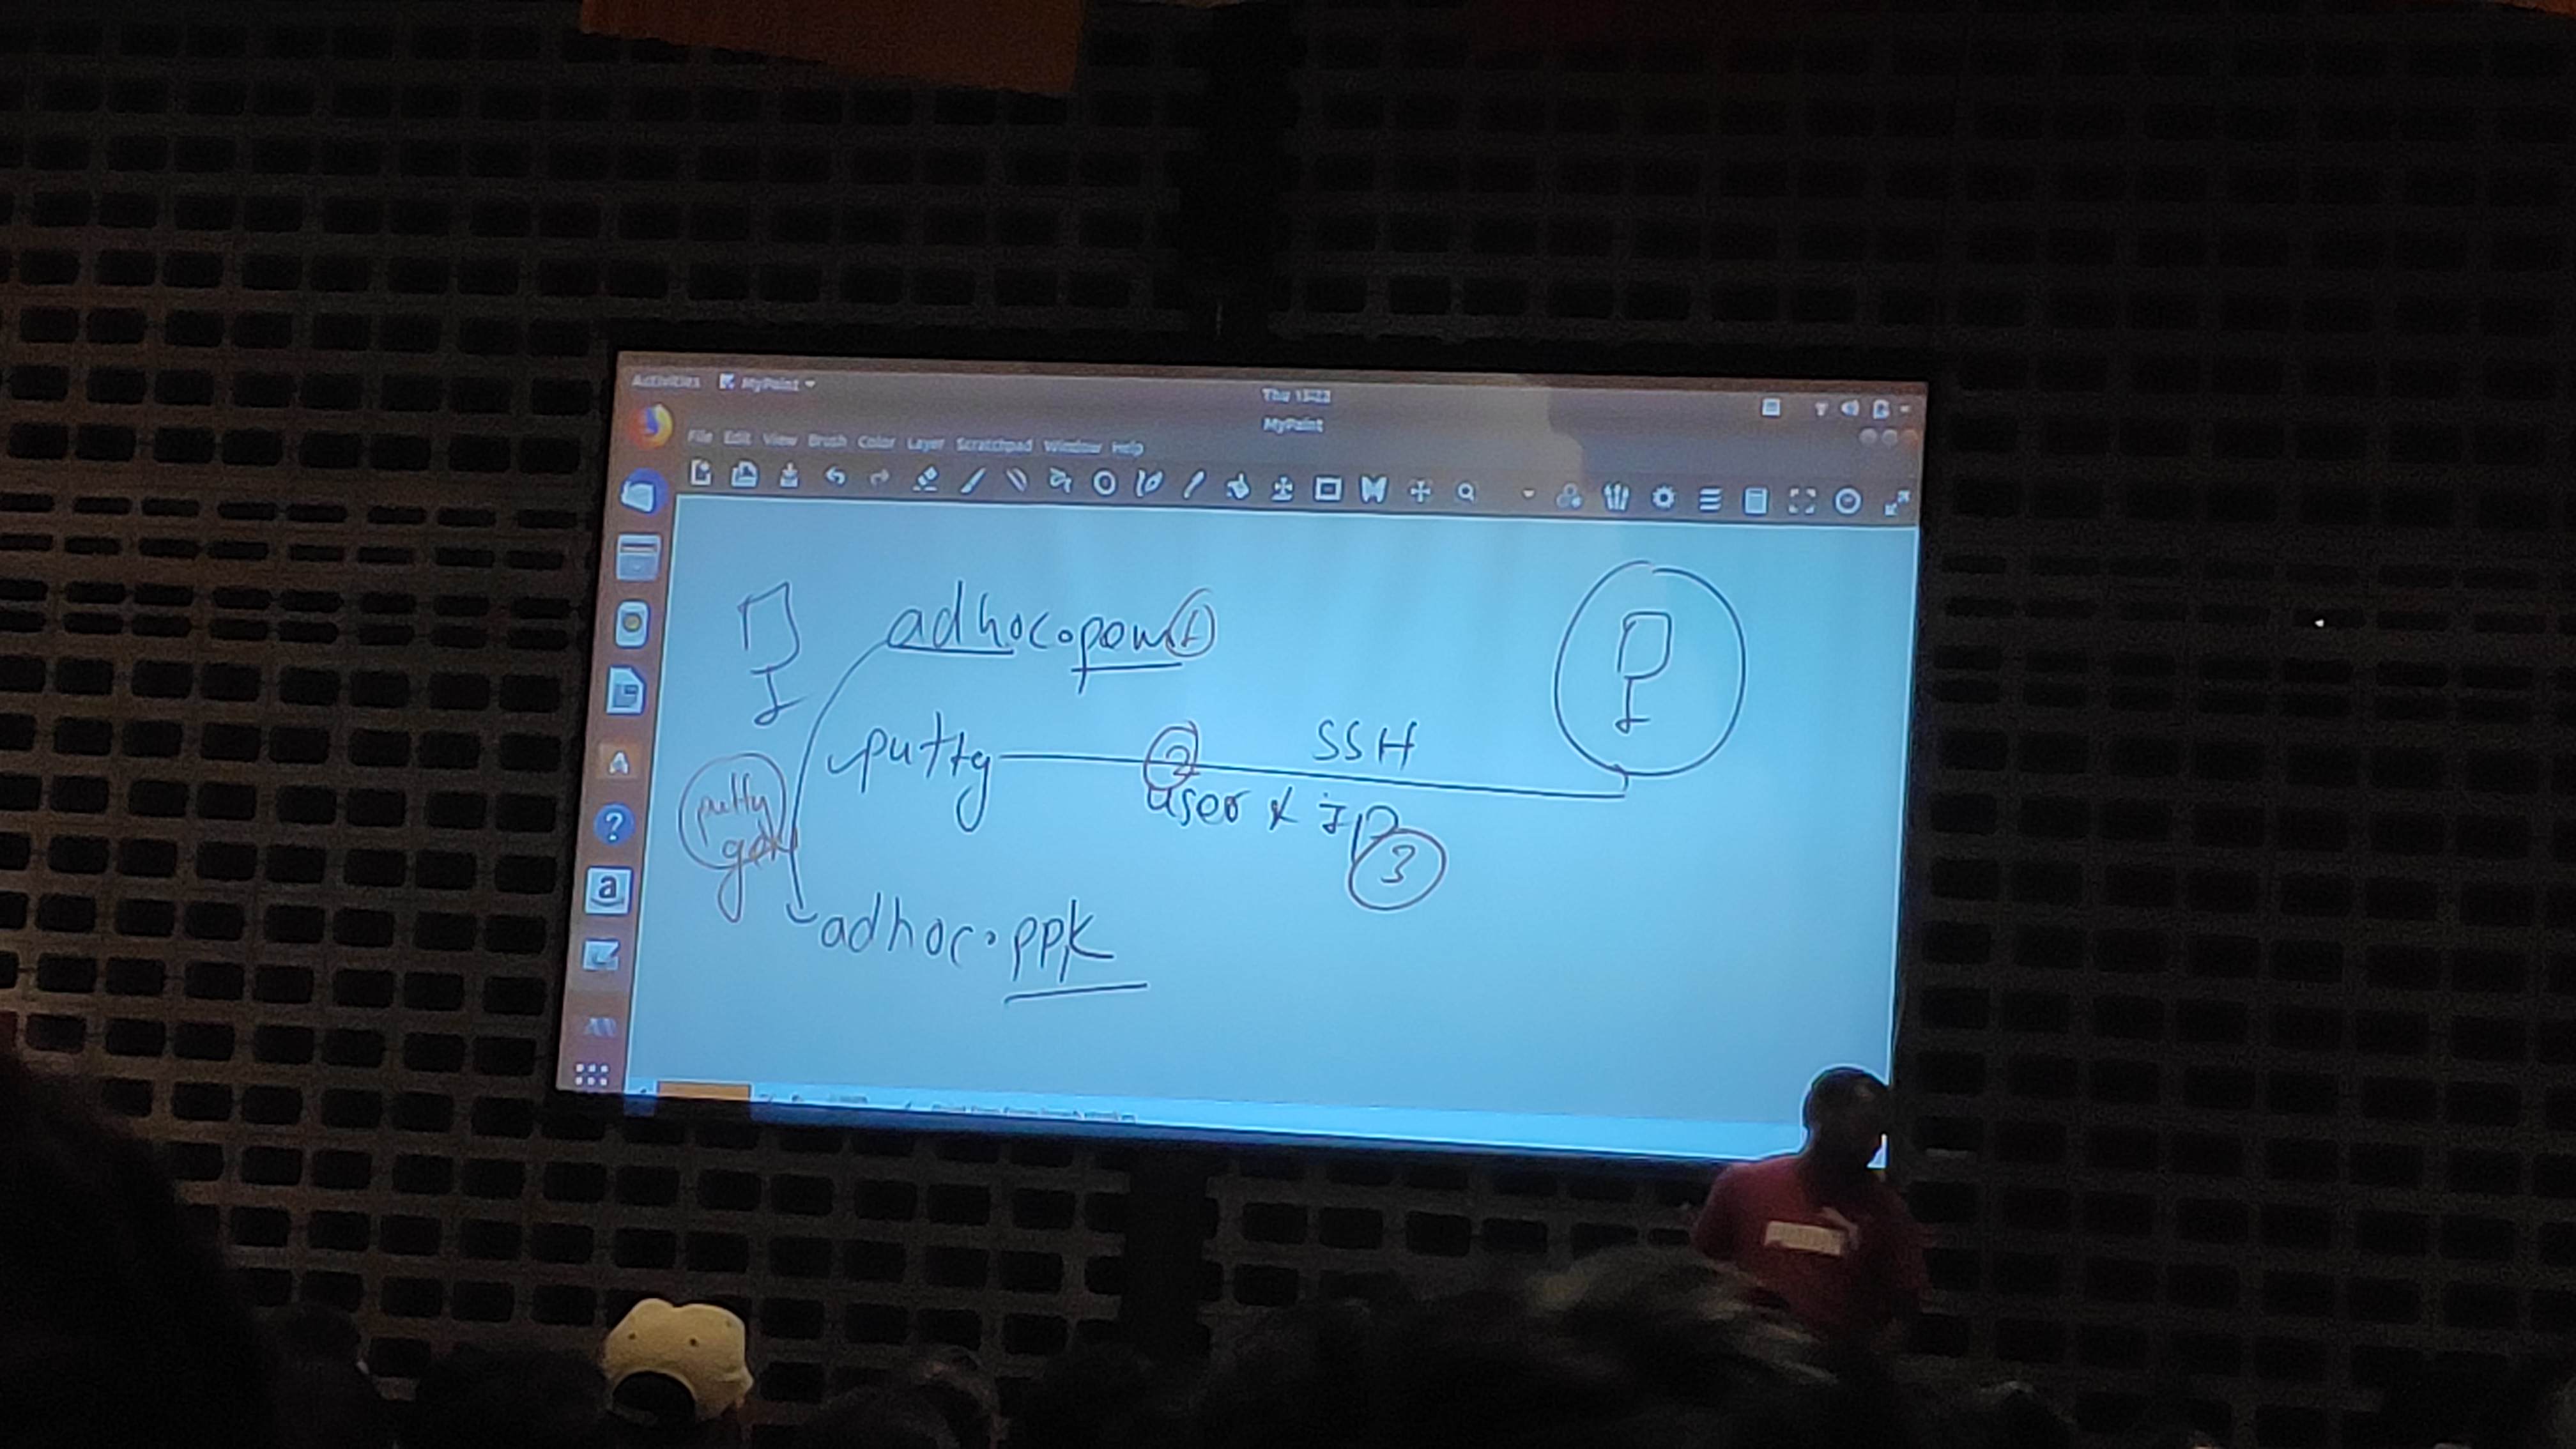 Activities MyPaint
Thu 13:22
MyPaint
File Edit View Brush Color Layer Scratchpad Window Help
adhoc.pem 1
putty 2 SSH
user & IP
3
putty
gen
adhoc.ppk
A
?
a